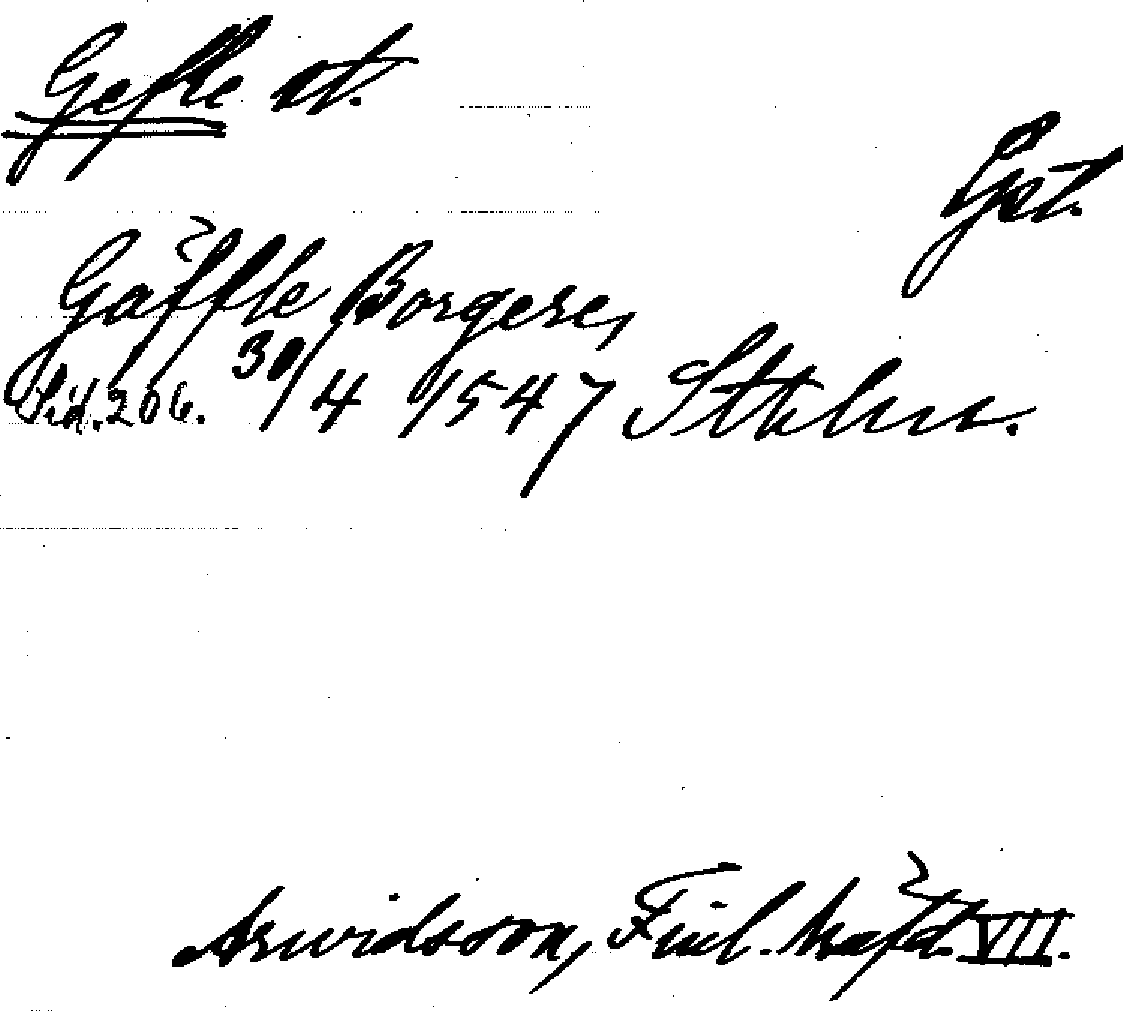 Gefle st.
Gst.
Gäffle Borgere,
Sid. 206. 30/4 1547 Sthlm.
Arwidsson, Finl. häfd. VII.